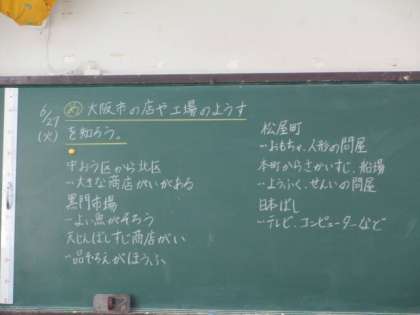 6/27
(火)
め 大阪市の店や工場のようす
を知ろう。
中おう区から北区
…大きな商店がいがある
黒門市場
…よい魚がそろう
天じんばしすじ商店がい
…品ぞろえがほうふ
松屋町
…おもちゃ、人形の問屋
本町からさかいすじ、船場
…ようふく、せんいの問屋
日本ばし
…テレビ、コンピューターなど